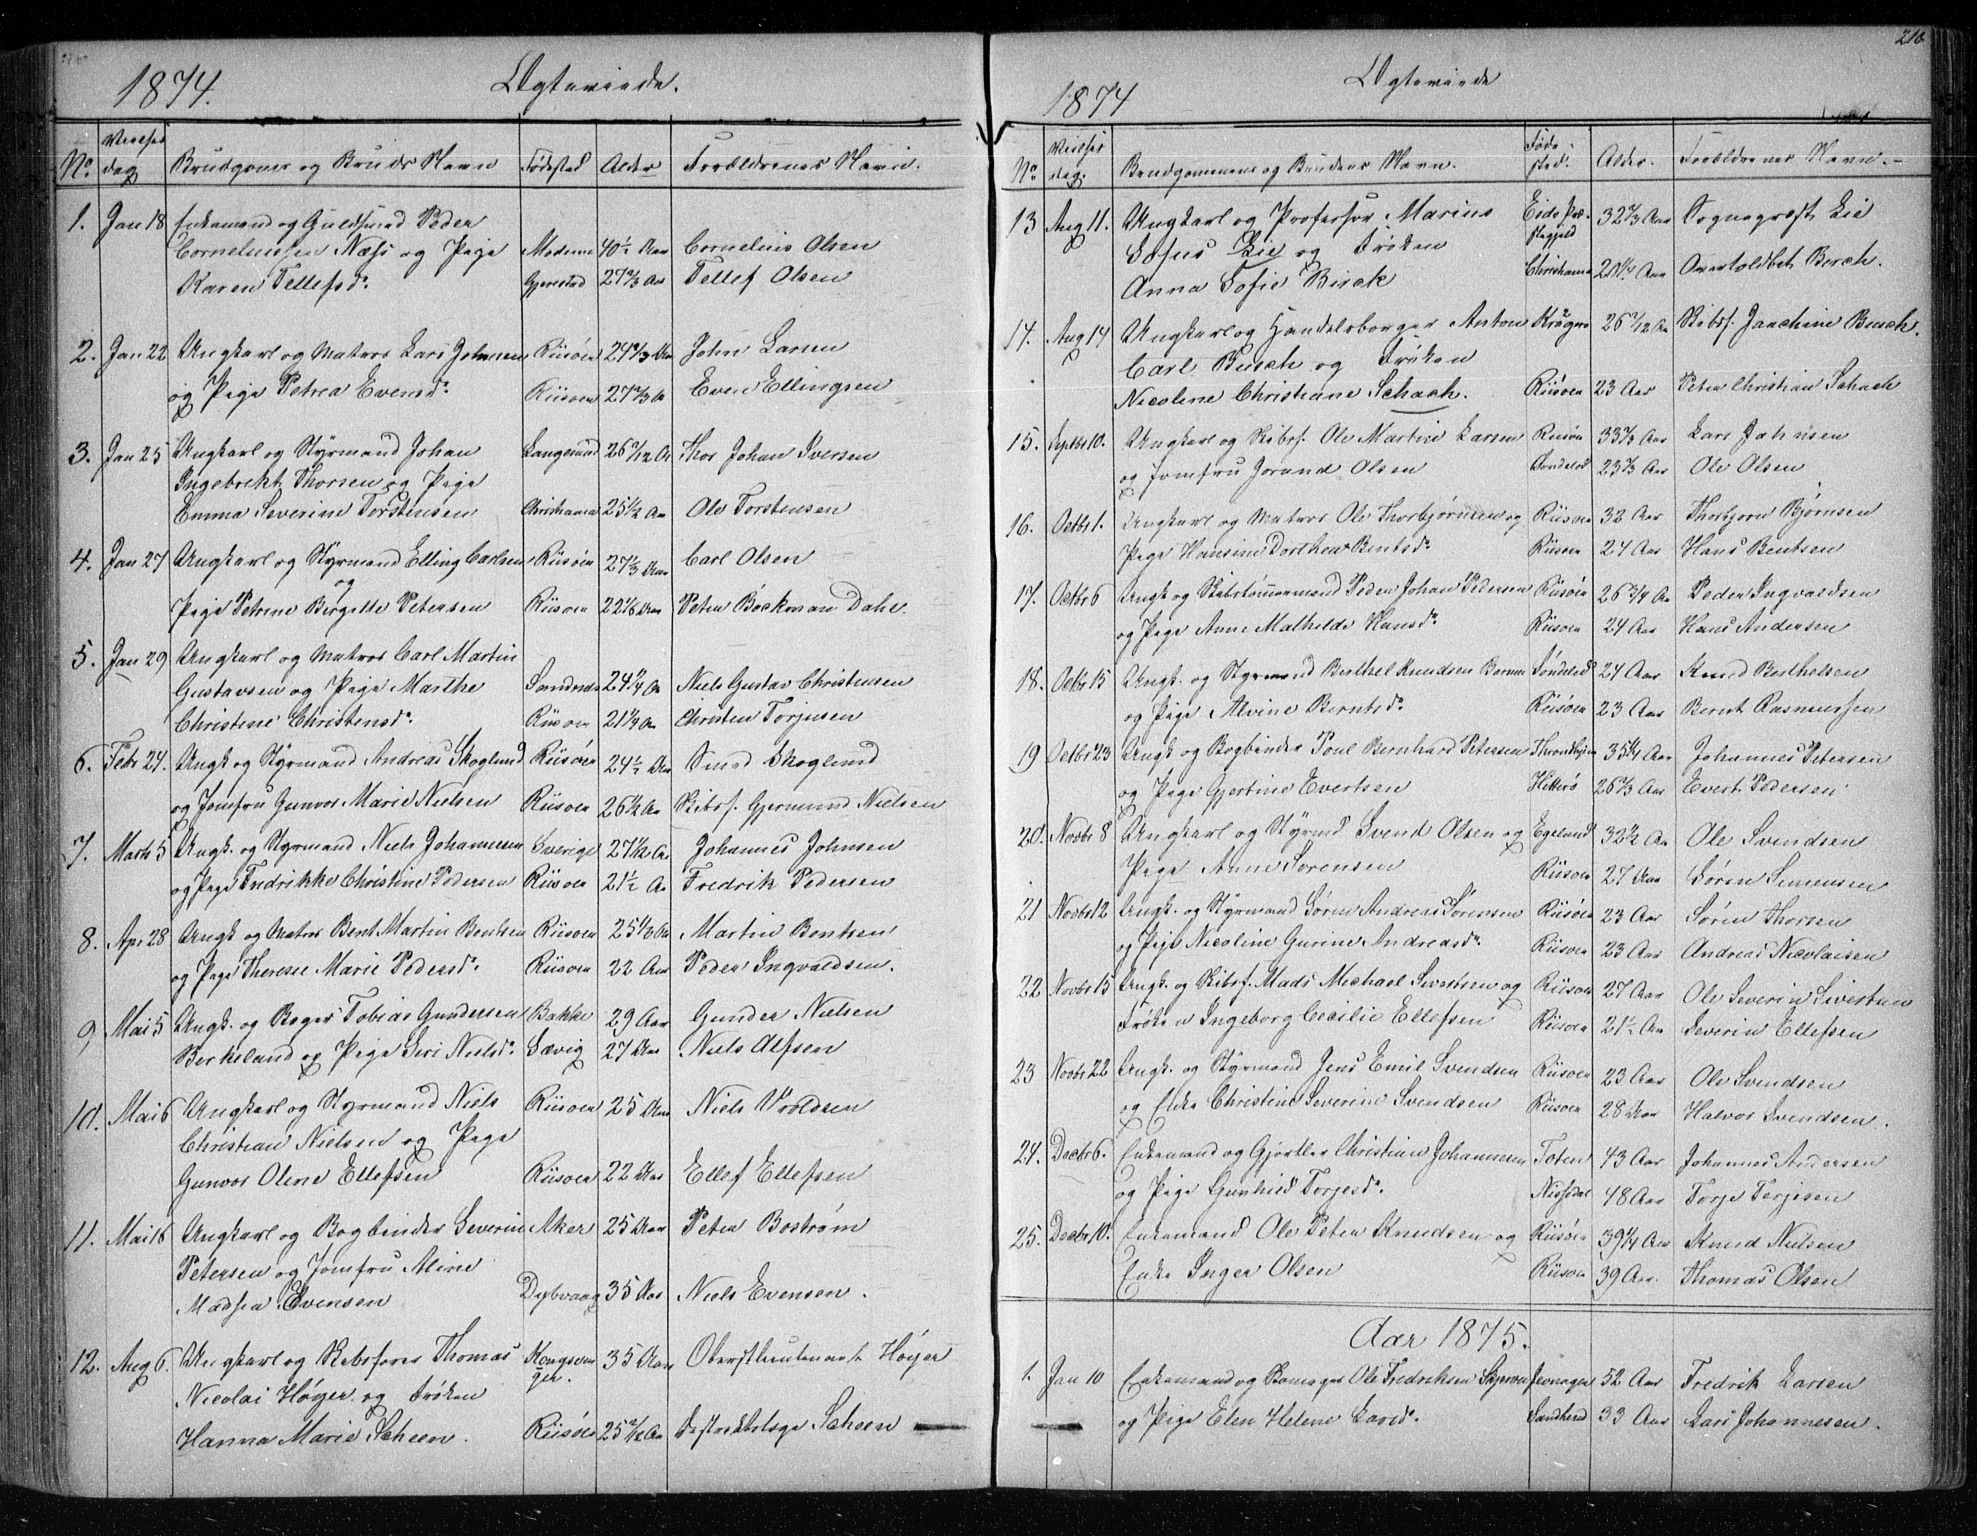 1874. Ægteviede.
No. Vielses dag Brudgoms og Bruds Navn Fødested Alder Forældrenes Navn.
1. Jan 18 Enkemand og Guldsmed Peder
Corneliussen Næss og Pige 40½ Aar Cornelius Olsen
Karen Tellefsd. Gjerestad 27 Aar Tellef Olsen
2. Jan 22 Ungkarl og Matros Lars Johnsen Riisøer 24 Aar John Larsen
og Pige Petrea Evensd. Riisøer 27 Even Ellingsen
3. Jan 25 Ungkarl og Styrmand Johan Langesund 26 Thor Johan Iversen
Ingebrekt Thorsen og Pige
Emma Severine Torstensen Christiania 25½ Aar Ole Torstensen
4. Jan 27 Ungkarl og Styrmand Elling Carlsen Riisøer 27⅓ Aar Carl Olsen
og
Pige Petrine Birgitte Petersen Riisøer 22⅙ Aar Peter Böckman Dahl.
5. Jan 29 Ungkarl og Matros Carl Martin
Gustavsen og Pige Marthe 24¼ Aar Niels Gustav Christensen
Christine Christensd. Riisøer 21 Aar Christen Torjusen
6. Febr 24. Ungk og Styrmand Andreas Skoglund Riisøer 24½ Aar Skoglund
og Jomfru Gunvor Marie Nielsen Riisøer 26½ Aar Skibsf. Gjermund Nielsen
7. Marts 5 Ungk. og Styrmand Niels Johannesen Sverige 27½ Aar Johannes Johnsen
og Pige Fredrikke Christine Pedersen Riisøer 21½ Aar Fredrik Pedersen
8. Apr 28 Ungk og Matros Bent Martin Bentsen Riisøer 25 Aar Martin Bentsen
og Pige Therese Marie Pedersd. Riisøer 22 Aar Peder Ingvaldsen.
9 Mai 5 Ungk. og Bager Tobias Gundersen Bakke 29 Aar Gunder Nielsen
Berkeland og Pige Siri Nielsd. 27 Aar Niels Alfsen
10. Mai 6 Ungkarl og Styrmand Niels Riisøer 25 Aar Niels Wroldsen
Christian Nielsen og Pige
Gunvor Oline Ellefsen Riisøer 22 Aar Ellef Ellefsen
11. Mai 16 Ungkarl og Bogbinder Severin Aker 25 Aar Peter Boström
Petersen og Jomfru Aline
Madsea Evensen Dybvaag 35 Aar Niels Evensen.
12. Aug 6. Ungkarl og Skibsfører Thomas Kongsvin 35 Aar Oberstleutenant Höyer
ger.
Nicolai Höyer og Frøken
Hanna Marie Scheen. Riisøer 25 Aar Scheen
216
1874 Ægteviede
No Vielses dag. Brudgommens og Brudens Navn. Føde-sted. Alder. Forældrenes Navn.
13 Aug 11. Ungkarl og Professor Marius Eids Præ- 32⅔ Aar Sognepræst Lie
stegjeld
Sofus Lie og Frøken
Anna Sofie Birch Christiania 20¼ Aar Overtoldbet. Birch.
14. Aug 14 Ungkarl og Handelsborger Anton Kragerø 26 Skibsf. Joachim Busch.
Carl Busch og Frøken
Nicoline Christiane Schach. Riisøer 23 Aar Peter Christian Schach
15. Septbr 10. Ungkarl og Skibsf. Ole Martin Larsen Riisøer 33 Aar Lars Jahnsen
og Jomfru Jorand Olsen Søndeled 23 Aar Ole Olsen
16. Octbr 1. Ungkarl og Matros Ole Thorbjørnsen og Riisøer 32 Aar Thorbjørn Bjørnsen
Pige Hansine Dorthea Bentsd. Riisøer 24 Aar Hans Bentsen
17. Octbr 6 Ungk og Skibstømmermand Peder Johan Pedersen Riisøer 26¾ Aar Peder Ingvaldsen
og Pige Anne Mathilde Hansd. Riisøer 24 Aar Hans Andersen
18. Octbr 15 Ungk. og Styrmand Berthel Knudsen Søndeled 24 Aar Knud Berthelsen
og Pige Alvine Berntsd. Riisøer 23 Aar Bernt Rasmussen
19 Octbr 23 Ungk og Bogbinder Poul Bernhard Petersen Throndhjem 35¼ Aar Johannes Petersen
og Pige Gjertine Evertsen Hitterø 26 Aar Evert Pedersen
20. Novbr 8 Ungkarl og Styrmd Svend Olsen og Egelund 32½ Aar Ole Svendsen
Pige Anne Sørensen Riisøer 27 Aar Sören Simensen
21 Novbr 12 Ungk. og Styrmand Sören Andreas Sörensen Riisøer 23 Aar Sören Thorsen
og Pige Nicoline Gurine Andreasd. Riisøer 23 Aar Andreas Nicolaisen
22 Novbr 15 Ungk. og Skibsf. Mads Michael Sivertsen og Riisøer 27 Aar Ole Severin Sivertsen
Frøken Ingeborg Cecilie Ellefsen Riisøer 21½ Aar Severin Ellefsen
23 Novbr 22 Ungk. og Styrmand Jens Emil Svendsen Riisøer 23 Aar Ole Svendsen
og Enke Christine Severine Svendsen Riisøer 28 Aar Halvor Svendsen.
24. Decbr 6. Enkemand og Gjørtler Christian Johannesen Toten 43 Aar Johannes Andersen
og Pige Gunhild Torjesd. Nissedal 48 Aar Torje Terjesen
25. Decbr 10. Enkemand Ole Peter Knudsen og Riisøer 39¼ Aar Knud Nielsen
Enke Inger Olsen Riisøer 39 Aar. Thomas Olsen
Aar 1875.
1. Jan 10 Enkemand og Ole Fredriksen 52 Aar Fredrik Larsen
og Pige Elen Helene Larsd. 33 Aar Lars Johannesen.